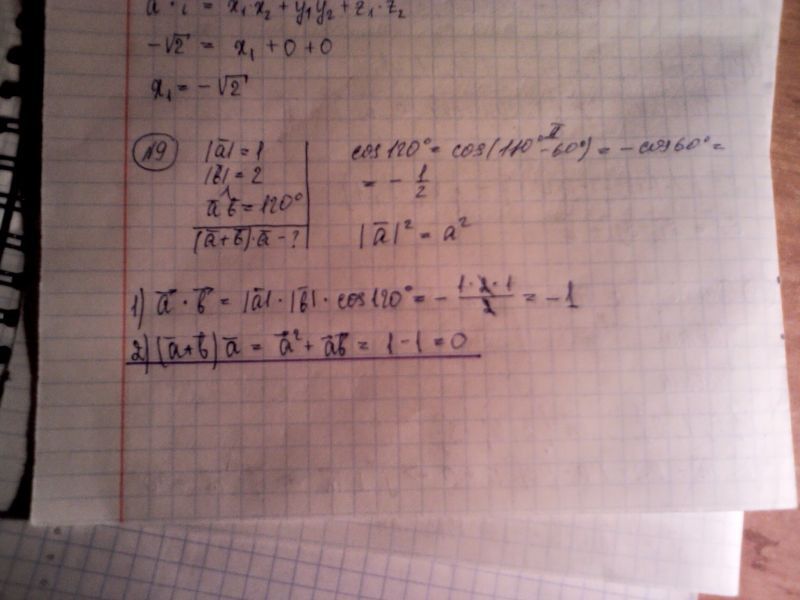 a · i = x₁·x₂ + y₁y₂ + z₁·z₂
-√2 = x₁ + 0 + 0
x₁ = -√2
№9
|a̅| = 1
|b̅| = 2
a̅^b̅ = 120°
(a̅+b̅)·a̅ - ?
cos120° = cos(180° - 60°) = - cos60° =
II
= - 1/2
|a̅|² = a²
1) a̅ · b̅ = |a̅| · |b̅| · cos120° = - 1·2·1/2 = -1
2) (a̅+b̅) a̅ = a̅² + a̅b̅ = 1 - 1 = 0